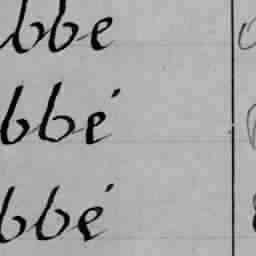 bbe
bbé
bbé